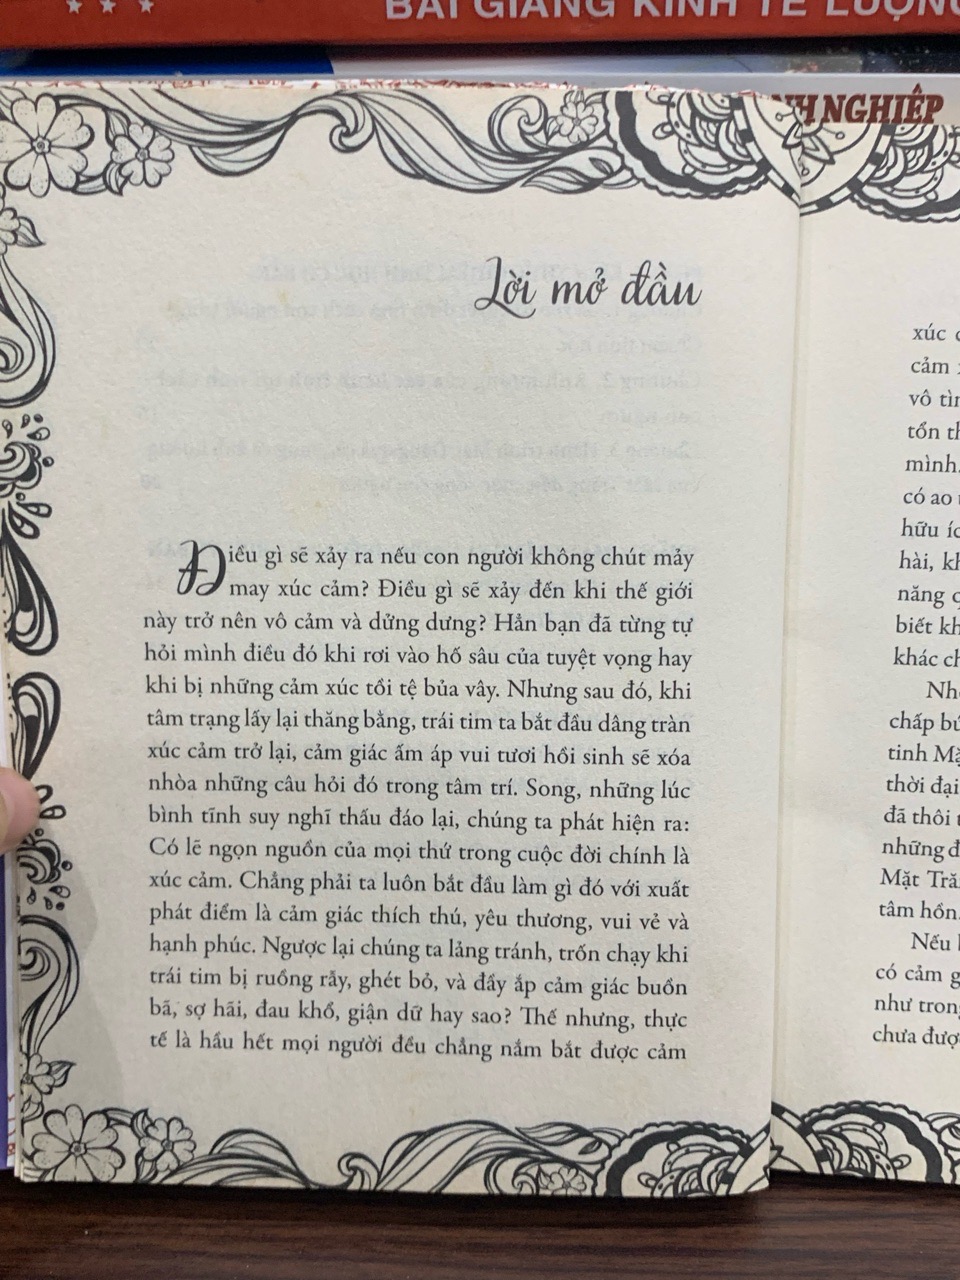 BÀI GIẢNG KINH TẾ LƯỢNG
NH NGHIỆP
Lời mở đầu
Điều gì sẽ xảy ra nếu con người không chút mảy
may xúc cảm? Điều gì sẽ xảy đến khi thế giới
này trở nên vô cảm và dửng dưng? Hẳn bạn đã từng tự
hỏi mình điều đó khi rơi vào hố sâu của tuyệt vọng hay
khi bị những cảm xúc tồi tệ bủa vây. Nhưng sau đó, khi
tâm trạng lấy lại thăng bằng, trái tim ta bắt đầu dâng tràn
xúc cảm trở lại, cảm giác ấm áp vui tươi hồi sinh sẽ xóa
nhòa những câu hỏi đó trong tâm trí. Song, những lúc
bình tĩnh suy nghĩ thấu đáo lại, chúng ta phát hiện ra:
Có lẽ ngọn nguồn của mọi thứ trong cuộc đời chính là
xúc cảm. Chẳng phải ta luôn bắt đầu làm gì đó với xuất
phát điểm là cảm giác thích thú, yêu thương, vui vẻ và
hạnh phúc. Ngược lại chúng ta lảng tránh, trốn chạy khi
trái tim bị ruồng rẫy, ghét bỏ, và đầy ắp cảm giác buồn
bã, sợ hãi, đau khổ, giận dữ hay sao? Thế nhưng, thực
tế là hầu hết mọi người đều chẳng nắm bắt được cảm
xúc
cảm
vô tìn
tổn th
mình.
có ao
hữu íc
hài, kh
năng
biết kh
khác ch
Nh
chấp bú
tinh Mặ
thời đại
đã thôi
những đ
Mặt Tră
tâm hồn.
Nếu
có cảm g
như trong
chưa đượ